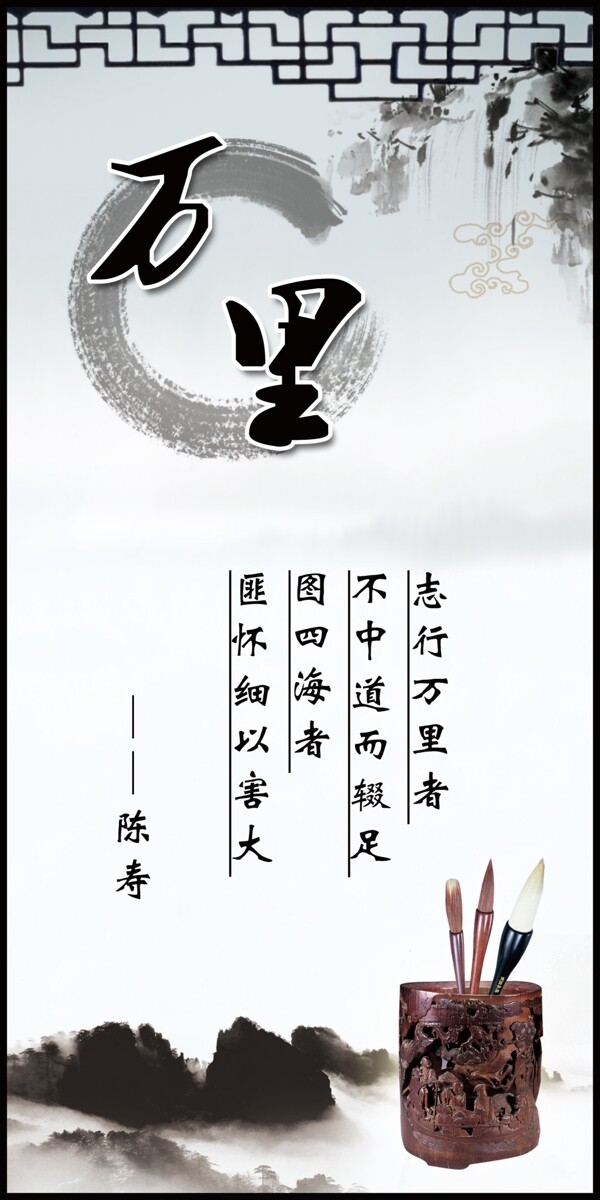 万里
志行万里者
不中道而辍足
图四海者
匪怀细以害大
——陈寿